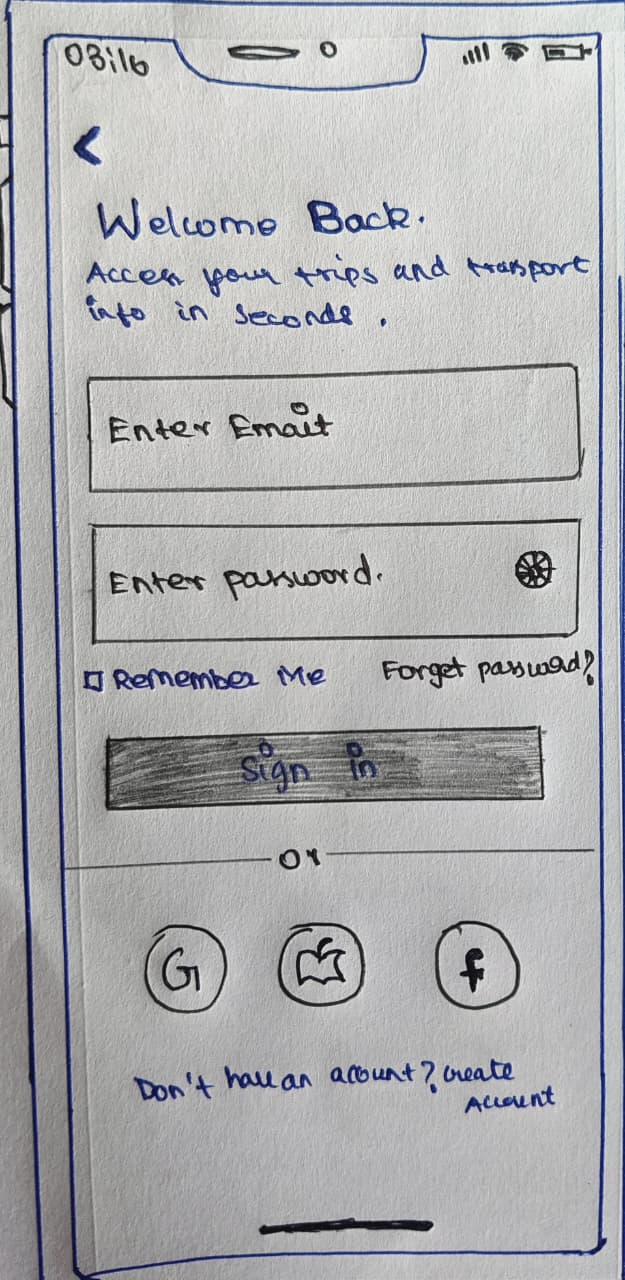 03:16
Welcome Back.
Access your trips and transport
info in seconds.
Enter Email
Enter password.
Remember Me Forget password?
Sign in
or
G f
Don't have an account? create
Account